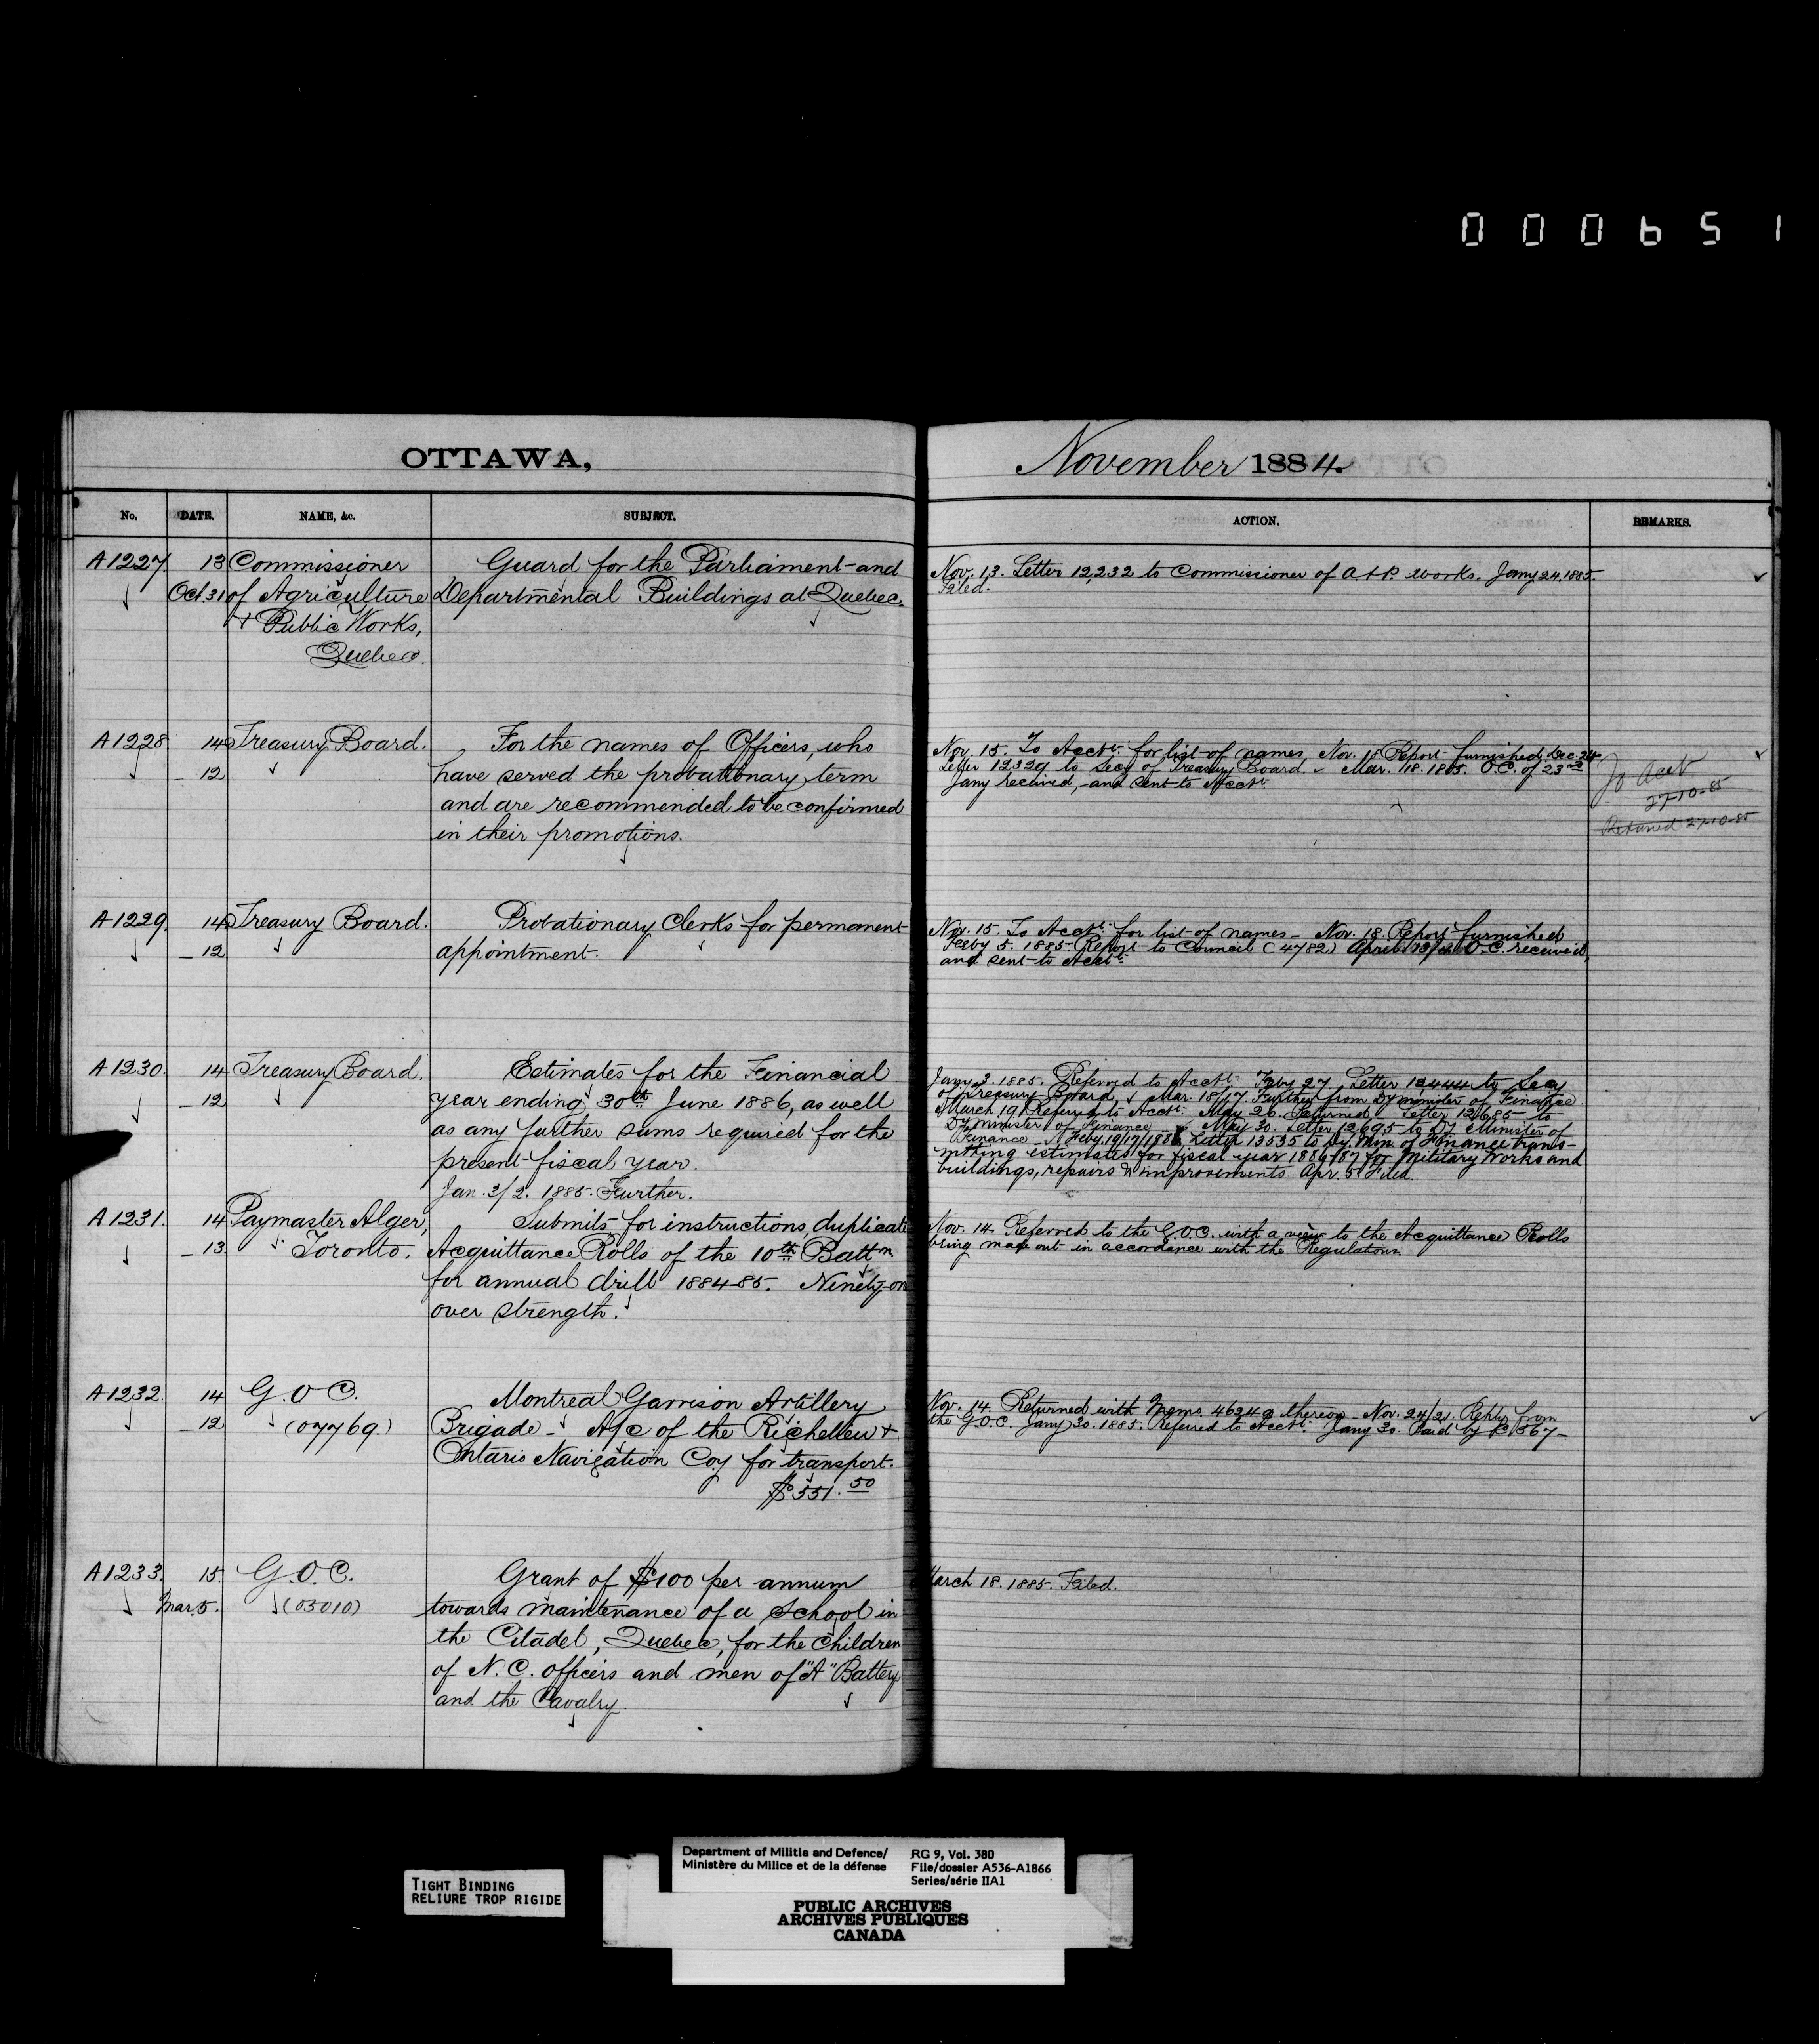 000651
OTTAWA,
November 1884.
No.
DATE.
NAME, &c.
SUBJECT.
ACTION.
REMARKS.
A1227. 13 Commissioner Guard for the Parliament and
Oct 31 of Agriculture Departmental Buildings at Quebec.
+ Public Works,
Quebec.
Nov. 13. Letter 12,232 to Commissioner of A + P. Works. Jany 24. 1885.
Filed.
A1228 14 Treasury Board. For the names of Officers, who
12 have served the probationary term
and are recommended to be confirmed
in their promotions.
Nov. 15. To Acctt. for list of names, Nov. 18 Report furnished. Dec. 24
Letter 12329 to Secy of Treasury Board. Mar. 18. 1885. O.C. of 23rd
Jany received, and sent to Acctt.
To Acct
27-10-85
Returned 27-10-85
A1229. 14 Treasury Board. Probationary Clerks for permanent
12 appointment.
Nov. 15. To Acctt. for list of names - Nov. 18. Report furnished
Feby 5. 1885 Report to Council (4782) April O.C. received,
and sent to Acctt.
A1230. 14 Treasury Board. Estimates for the Financial
12 year ending 30th June 1886, as well
as any further sums required for the
present fiscal year.
Jan. 3/2. 1885. Further.
Jany 3. 1885. Referred to Acctt. Feby 27. Letter 12444 to Secy
of Treasury Board, Mar. 18/17 Further from Dy minister of Finance
March 19 Referred to Acctt. May 26. Returned - Letter 12,685 to
Dy. minister of Finance - May 30. Letter 12,695 to Dy. Minister of
Finance - Feby. 19/17/1886 Letter 13535 to Dy. Min. of Finance trans-
mitting estimates for fiscal year 1886/87 for Military Works and
buildings, repairs & improvements Apr. 5 Filed.
A1231. 14 Paymaster Alger, Submits for instructions, duplicate
13. Toronto. Acquittance Rolls of the 10th Battn.
for annual drill 1884-85. Ninety-one
over strength.
Nov. 14. Referred to the G.O.C. with a view to the Acquittance Rolls
being made out in accordance with the Regulations
A1232. 14 G.O.C. Montreal Garrison Artillery
12 (07769) Brigade - A/c of the Richelieu +
Ontario Navigation Coy for transport.
$551.50
Nov. 14. Returned with Memo 46249 thereon - Nov. 24/21. Reply from
the G.O.C. Jany 30. 1885. Referred to Acctt. Jany 30. Paid by 1367 -
A1233. 15. G.O.C. Grant of $100 per annum
Mar. 5. (03010) towards maintenance of a School in
the Citadel, Quebec, for the children
of N.C. officers and men of "A" Battery
and the Cavalry.
March 18. 1885. Filed.
TIGHT BINDING
RELIURE TROP RIGIDE
Department of Militia and Defence/
Ministère du Milice et de la défense
RG 9, Vol. 380
File/dossier A536-A1866
Series/série IIA1
PUBLIC ARCHIVES
ARCHIVES PUBLIQUES
CANADA